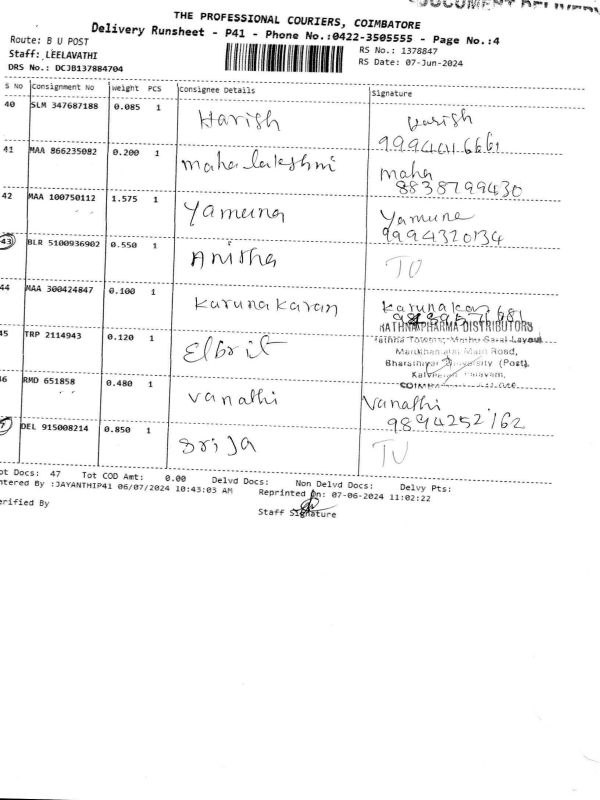 DOCUMENT DELIVERY
THE PROFESSIONAL COURIERS, COIMBATORE
Delivery Runsheet - P41 - Phone No.:0422-3505555 - Page No.:4
Route: B U POST
RS No.: 1378847
Staff: LEELAVATHI
RS Date: 07-Jun-2024
DRS No.: DCJB137884704
S No Consignment No Weight PCS Consignee Details Signature
40 SLM 347687188 0.085 1 Harish Harish
41 MAA 866235082 0.200 1 mahalakshmi maha
8838799430
42 MAA 100750112 1.575 1 yamuna Yamuna
9994320134
43 BLR 5100936902 0.550 1 Anitha TU
44 MAA 300424847 0.100 1 karunakaran
RATHNA PHARMA DISTRIBUTORS
45 TRP 2114943 0.120 1 Elbrit
Main Road,
Bharathiyar University (Post),
46 RMD 651858 0.480 1 vanathi Vanathi
9894252162
DEL 915008214 0.850 1 srija TU
ot Docs: 47 Tot COD Amt: 0.00 Delvd Docs: Non Delvd Docs: Delvy Pts:
ntered By :JAYANTHIP41 06/07/2024 10:43:03 AM Reprinted On: 07-06-2024 11:02:22
erified By
Staff Signature